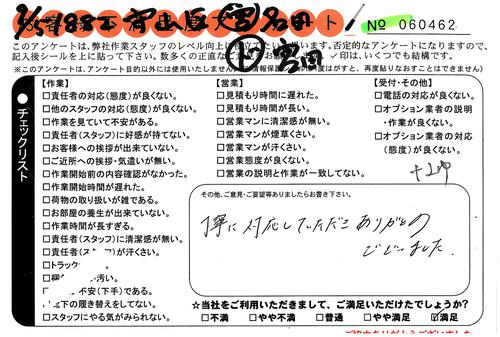 № 060462
このアンケートは、弊社作業スタッフのレベル向上に役立てたい
います。否定的なアンケートになりますので、
記入後シールを上に貼って下さい。
✓印は、いくつでも結構です。
※このアンケートは、アンケート目的以外には使用いたしません
がすと、再度貼りなおすことはできません)
チェックリスト
【作業】
□責任者の対応(態度)が良くない。
□他のスタッフの対応(態度)が良くない。
□作業を見ていて不安がある。
□責任者(スタッフ)に好感が持てない。
□お客様への挨拶が出来ていない。
□ご近所への挨拶・気遣いが無い。
□作業開始前の内容確認がなかった。
□作業開始時間が遅れた。
□荷物の取り扱いが雑である。
□お部屋の養生が出来ていない。
□作業時間が長すぎる。
□責任者(スタッフ)に清潔感が無い。
□責任者(スタッフ)が汗くさい。
□トラック
汚い。
不安(下手)である。
下の履き替えをしてない。
□スタッフにやる気がみられない。
【営業】
□見積もり時間に遅れた。
□見積もり時間が長い。
□営業マンに清潔感が無い。
□営業マンが煙草くさい。
□営業マンが汗くさい。
□営業態度が良くない。
□営業の説明と作業が一致してない。
【受付・その他】
□電話の対応が良くない。
□オプション業者の説明
・作業が良くない。
□オプション業者の対応
(態度)が良くない。
その他、ご意見・ご要望等ありましたらお書き下さい。
丁寧に対応していただき ありがとう
ございました。
☆当社をご利用いただきまして、ご満足いただけたでしょうか?
□不満 □やや不満 □普通 □やや満足 ☑満足